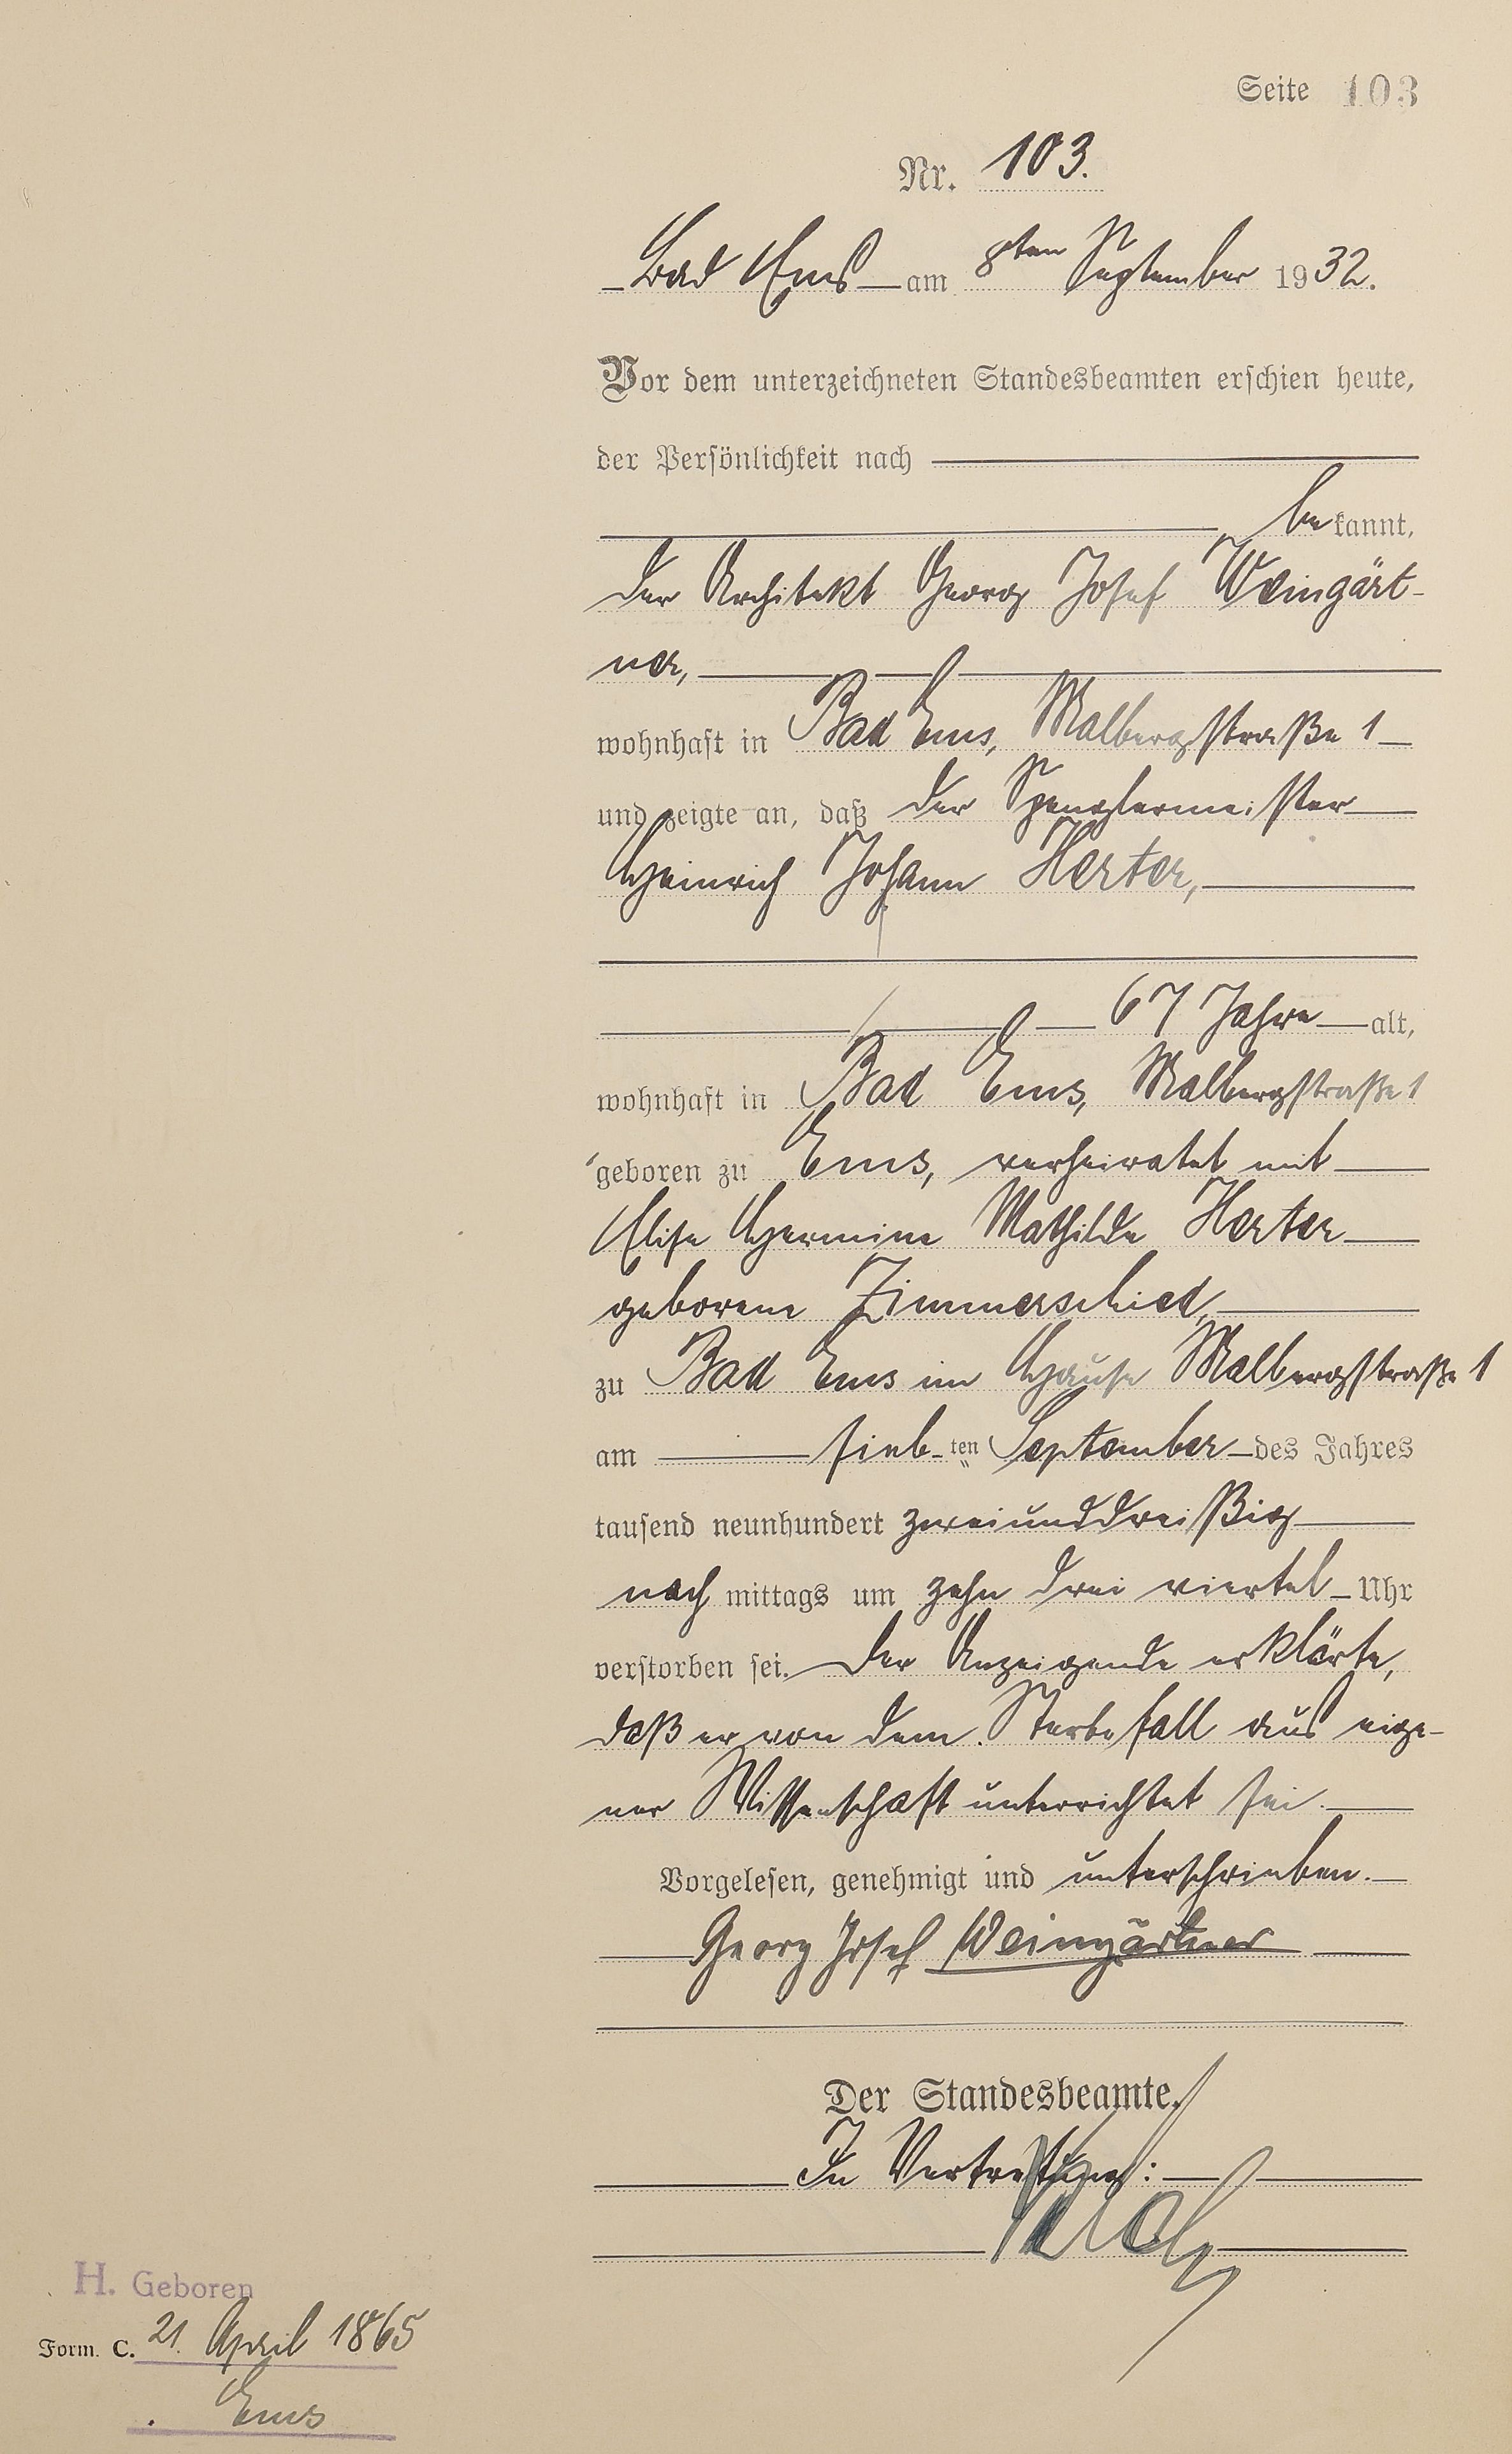 Seite 103
Nr. 103.
Bad Ems am 8ten September 1932.
Vor dem unterzeichneten Standesbeamten erschien heute,
der Persönlichkeit nach
bekannt,
der Architekt Georg Josef Weingärt-
ner,
wohnhaft in Bad Ems, Malbergstraße 1
und zeigte an, daß der Spenglermeister
Heinrich Johann Herter,
67 Jahre alt,
wohnhaft in Bad Ems, Malbergstraße 1
geboren zu Ems, verheiratet mit
Elise Hermine Mathilde Herter
geborene Zimmerschied,
zu Bad Ems im Hause Malbergstraße 1
am sieb-ten September des Jahres
tausend neunhundert zweiunddreißig
nach mittags um zehn drei viertel Uhr
verstorben sei. Der Anzeigende erklärte,
daß er von dem Sterbefall aus eige-
ner Wissenschaft unterrichtet sei.
Vorgelesen, genehmigt und unterschrieben.
Georg Josef Weingärtner
Der Standesbeamte.
In Vertretung:
H. Geboren
Form. C. 21. April 1865
Ems